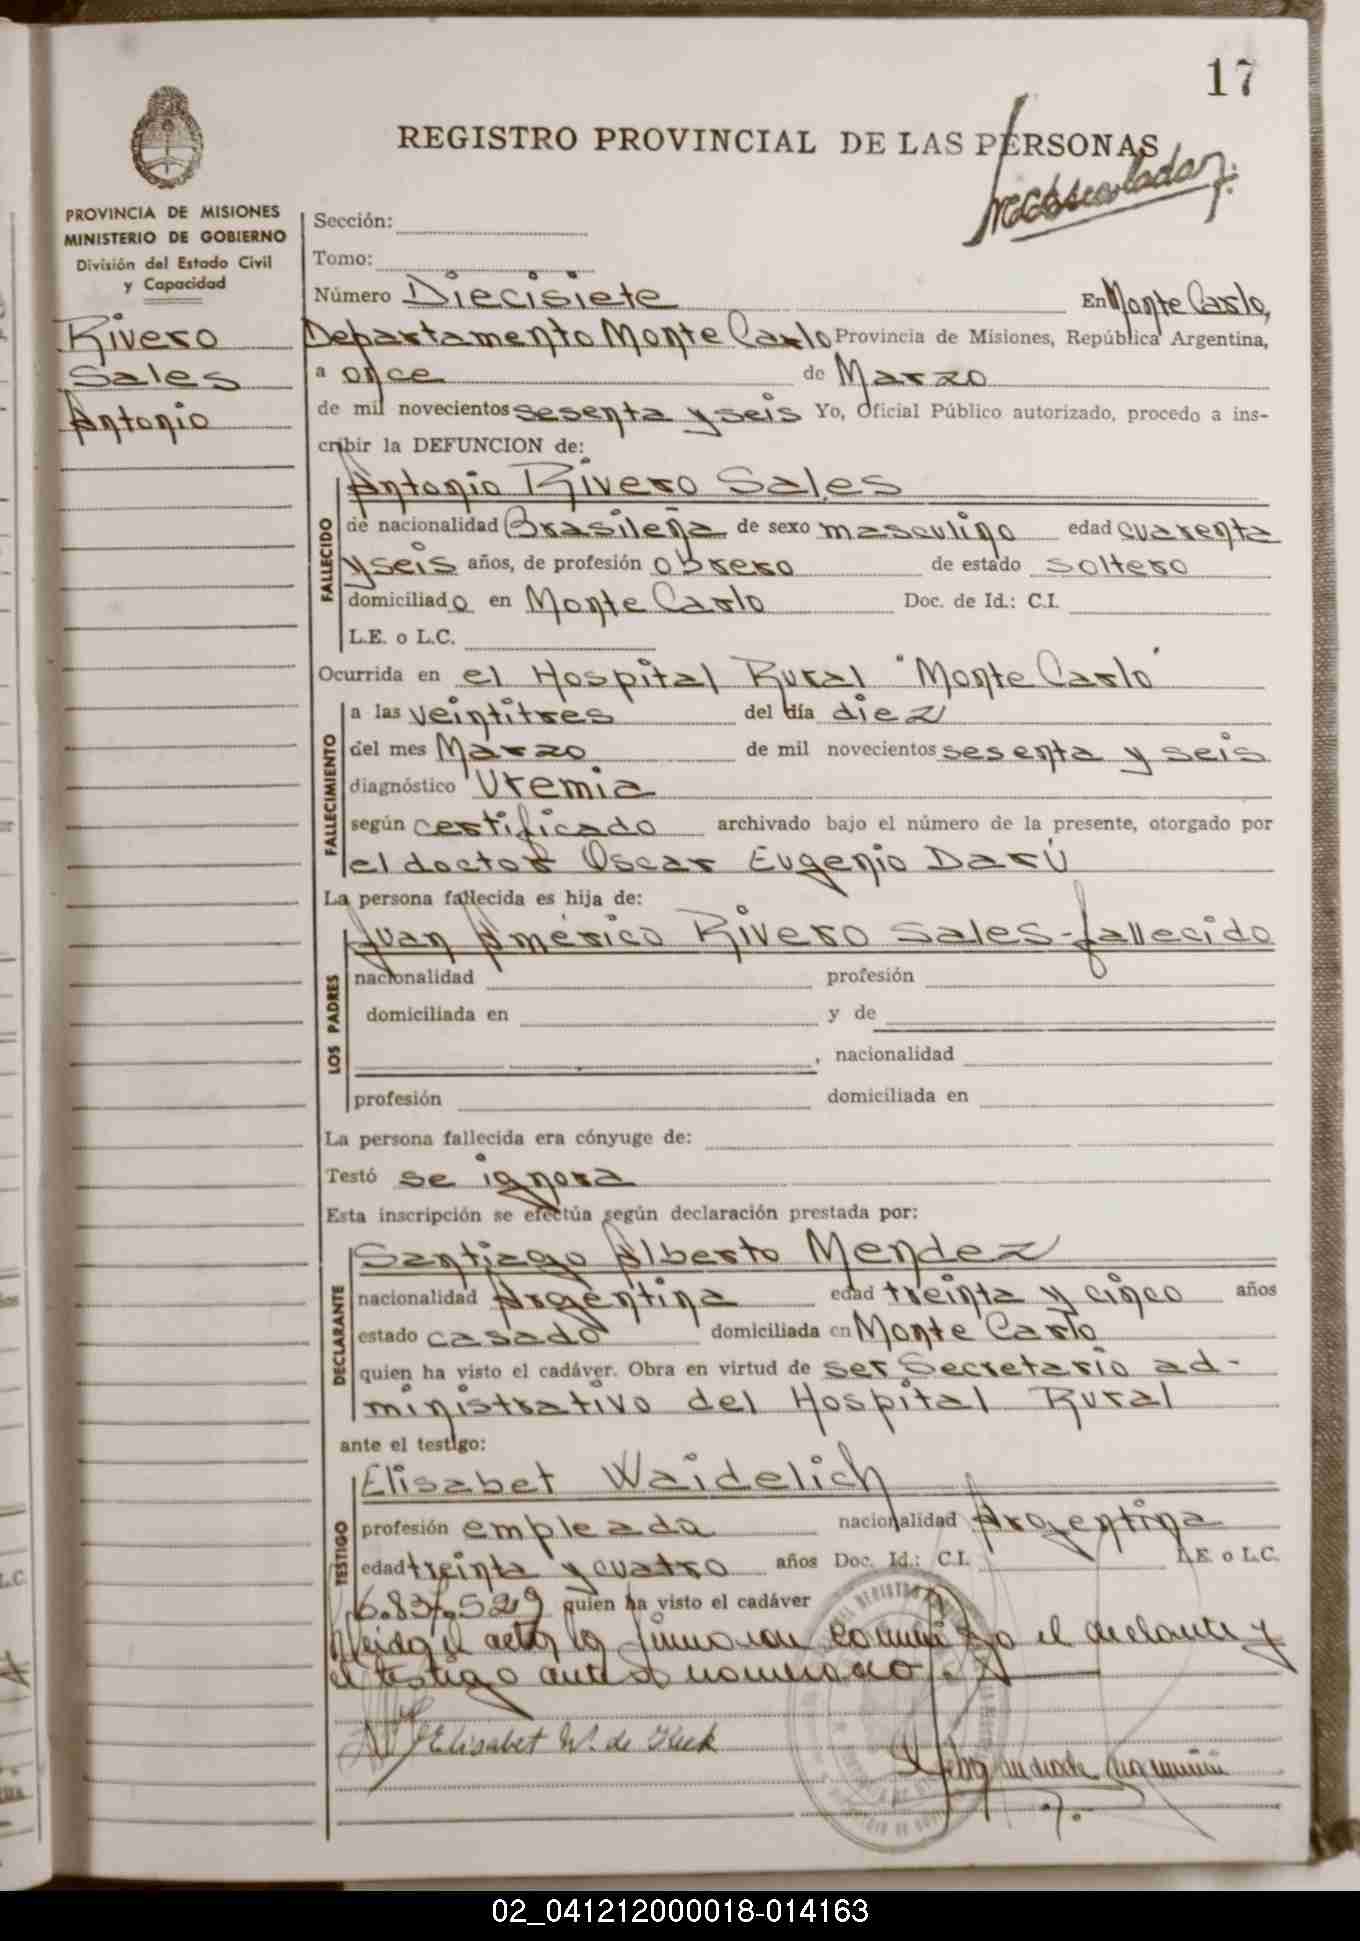 17
REGISTRO PROVINCIAL DE LAS PERSONAS
PROVINCIA DE MISIONES
MINISTERIO DE GOBIERNO
División del Estado Civil
y Capacidad
Rivero
Sales
Antonio
Sección:
Tomo:
Número Diecisiete En Monte Carlo,
Departamento Monte Carlo Provincia de Misiones, República Argentina,
a once de Marzo
de mil novecientos sesenta y seis Yo, Oficial Público autorizado, procedo a ins-
cribir la DEFUNCION de:
FALLECIDO
Antonio Rivero Sales
de nacionalidad Brasileña de sexo masculino edad cuarenta
y seis años, de profesión obrero de estado soltero
domiciliado en Monte Carlo Doc. de Id.: C.I.
L.E. o L.C.
Ocurrida en el Hospital Rural "Monte Carlo"
FALLECIMIENTO
a las veintitres del día diez
del mes Marzo de mil novecientos sesenta y seis
diagnóstico Uremia
según certificado archivado bajo el número de la presente, otorgado por
el doctor Oscar Eugenio Darú
La persona fallecida es hija de:
LOS PADRES
Juan Américo Rivero Sales - fallecido
nacionalidad profesión
domiciliada en y de
, nacionalidad
profesión domiciliada en
La persona fallecida era cónyuge de:
Testó se ignora
Esta inscripción se efectúa según declaración prestada por:
DECLARANTE
Santiago Alberto Mendez
nacionalidad Argentina edad treinta y cinco años
estado casado domiciliada en Monte Carlo
quien ha visto el cadáver. Obra en virtud de ser Secretario ad-
ministrativo del Hospital Rural
ante el testigo:
TESTIGO
Elisabet Waidelich
profesión empleada nacionalidad Argentina
edad treinta y cuatro años Doc. Id.: C.I. L.E. o L.C.
6.837.529 quien ha visto el cadáver
el acta, la conmigo el y
el testigo
Elisabet W. de
02_041212000018-014163